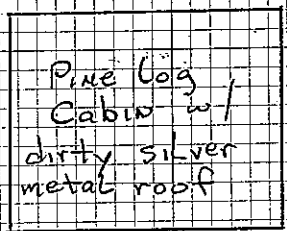 Pine log
Cabin w/
dirty silver
metal roof